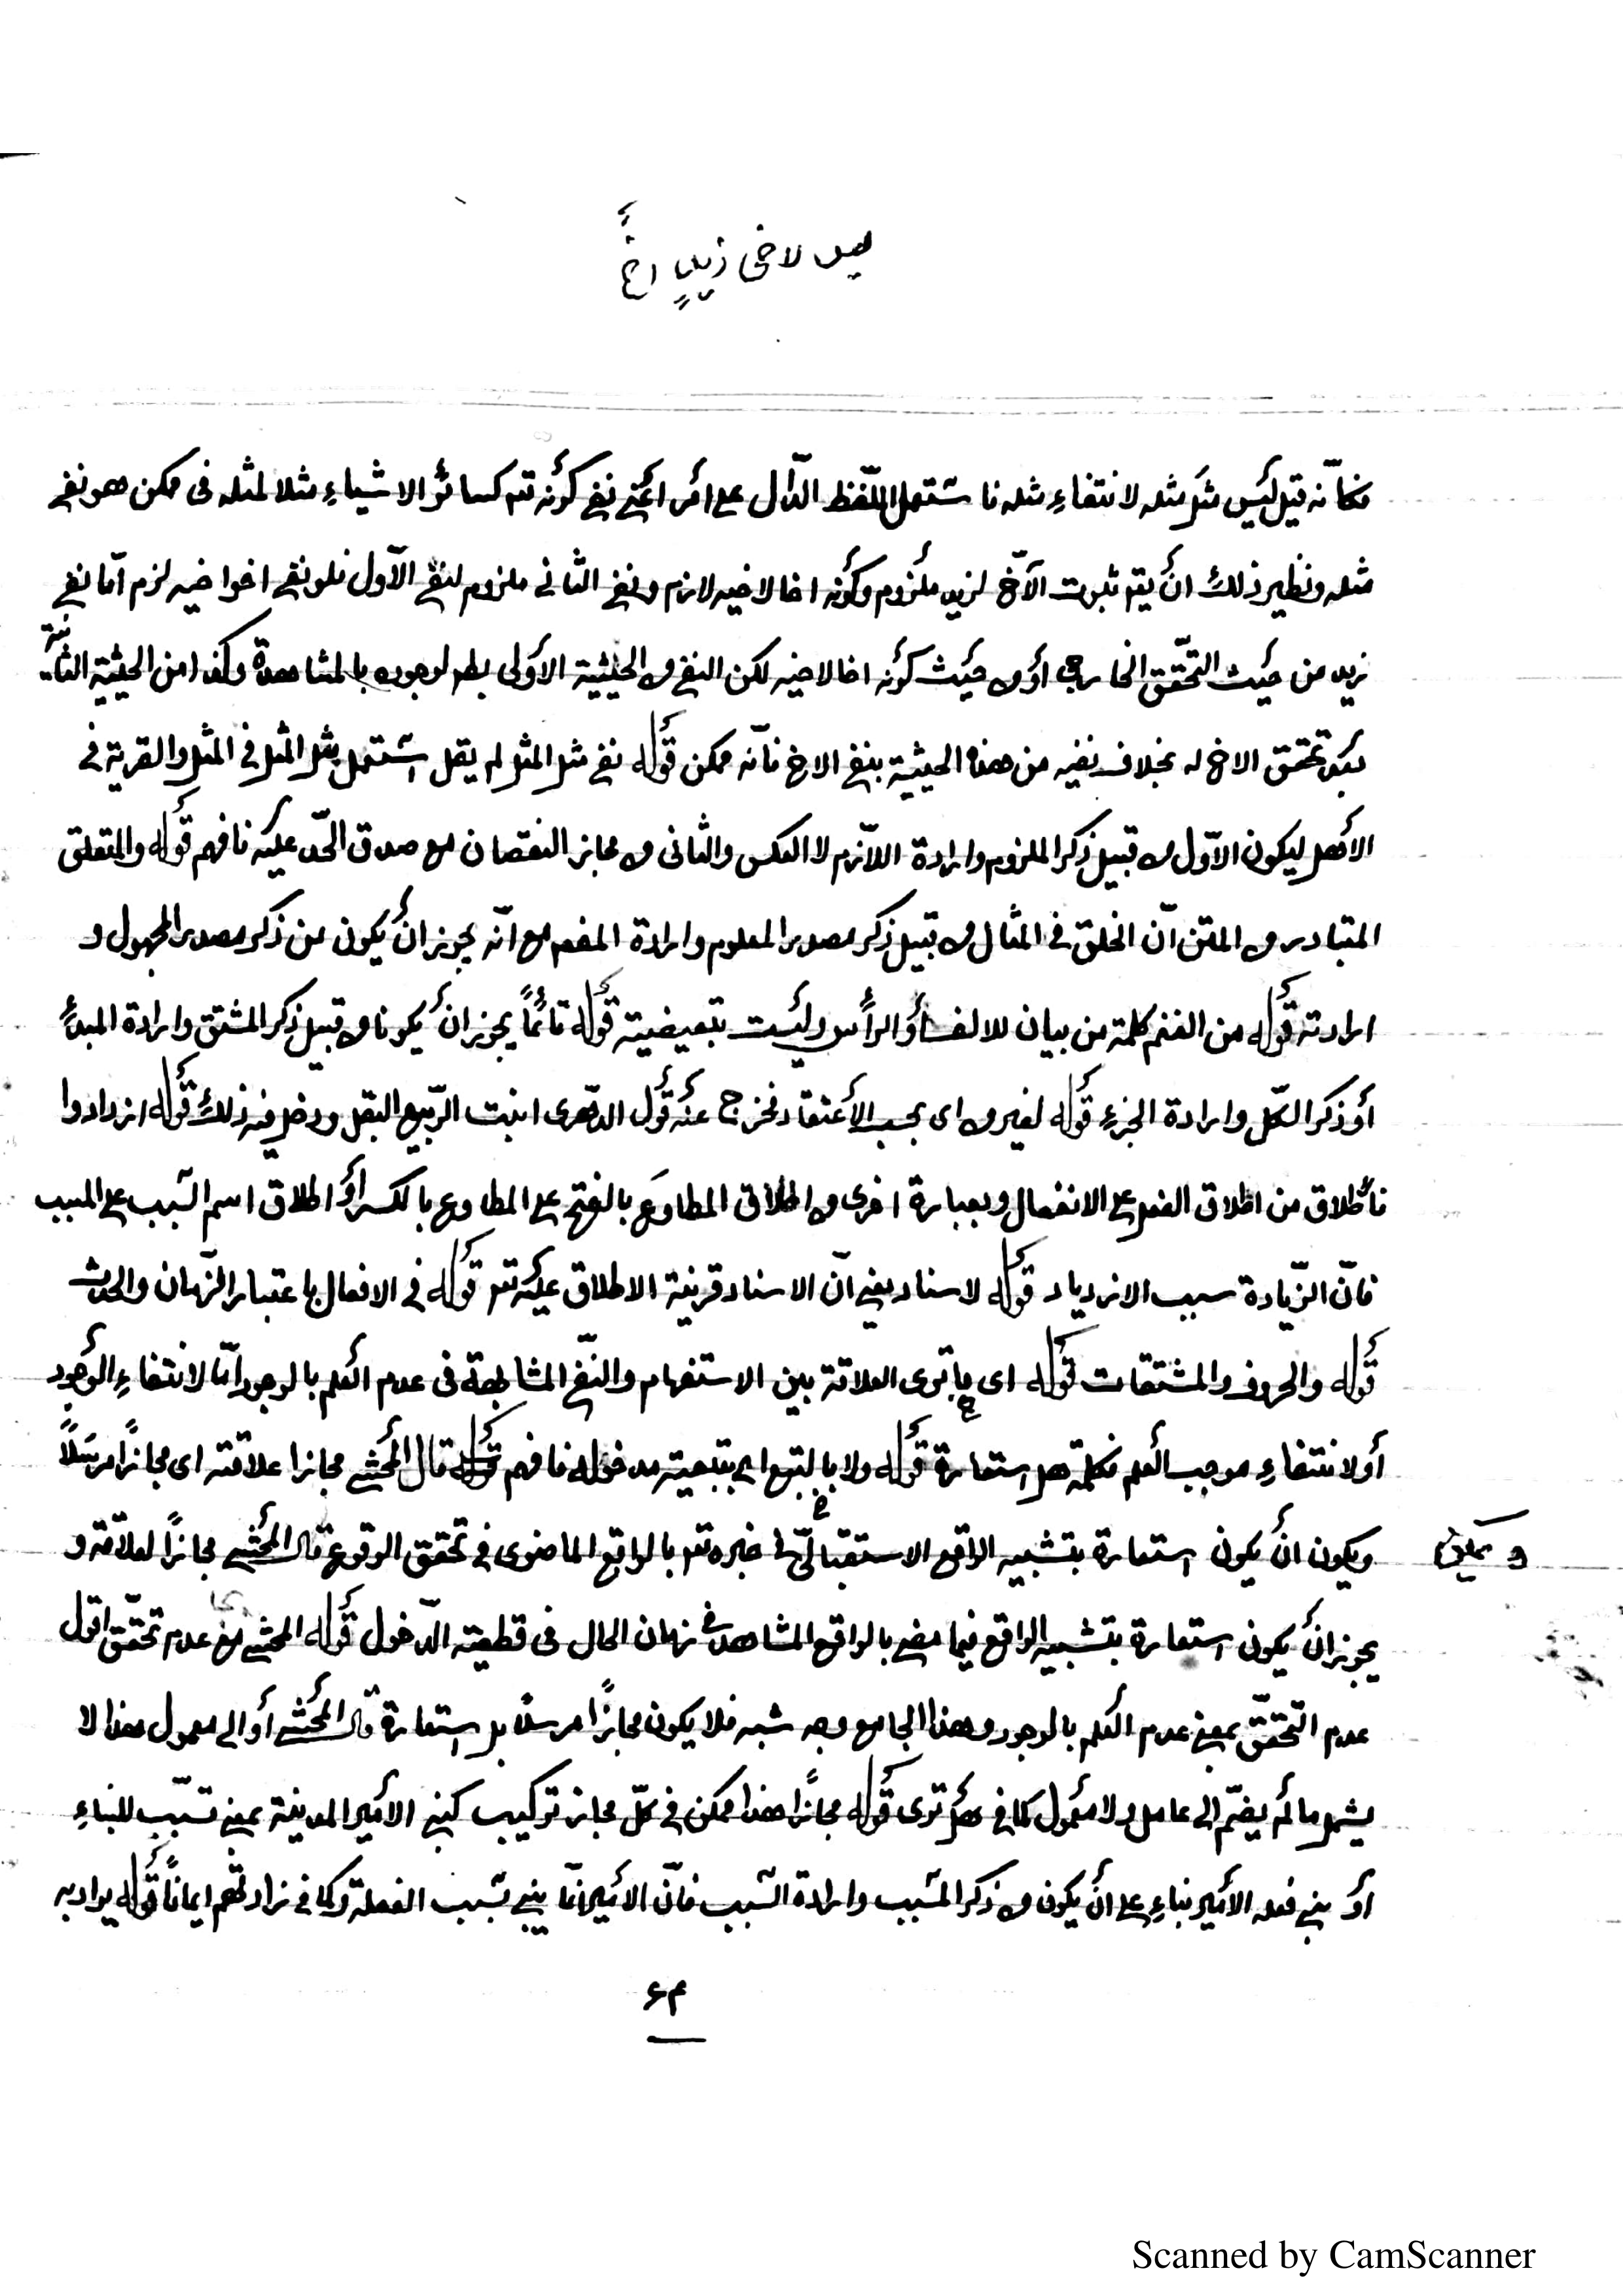 ليس لاخى زيدٍ اخٌ
فكأنّه قيل ليس مثل مثله لانتفاءِ مثله فاستعمل اللّفظ الدّال على امر اعنى نفى كونه تعـ كسائر الاشياءِ مثلا لمثله فى ممكن هو نفى
مثله ونظير ذلك انْ يقـ ثبوت الآخ لزيد ملزوم وكونه اخا لاخيه لازم ونفى الثانى ملزوم لنفى الاوّل فلو نفى اخو اخيه لزم امّا نفى
زيد من حيث التحقّق الخارجى أو من حيث كونه اخا لاخيه لكن النفى من الحيثية الأولى بطـ لوجوده بالمشاهدة وكذا من الحيثية الثانية
بعد تحقق الاخ له بخلاف نفيه من هذه الحيثية بنفى الاخ فانّه ممكن قوله نفى مثل المثل لم يقل استعمل مثل المثل فى المثل والقرية فى
الأهل ليكون الاوّل من قبيل ذكر الملزوم وارادة اللّازم لا العكس والثانى من مجاز النقصان مع صدق الحّد عليه فافهم قوله والمتعلق
المتبادر من المتن انّ الخلق فى المثال من قبيل ذكر مصدر المعلوم وارادة المفعـ مع انّه يجوز انْ يكون من ذكر مصدر المجهول و
ارادته قوله من الغنم كلمة من بيان للالف أو الرأس وليست بتبعيضية قوله قائمًا يجوز انْ يكونا من قبيل ذكر المشتق وارادة المبدأ
أو ذكر الكّل وارادة الجزءِ قوله لغير من اى بحسب الأعتقاد فخرج عنه قول الدهّرى انبت الرّبيع البقل ودخل فيه ذلك قوله ازدادوا
فأطلاق من اطلاق الفعل على الانفعال وبعبارة اخرى من اطلاق المطاوَع بالفتح على المطاوع بالكسر أو اطلاق اسم السّبب على المسبب
فانّ الزّيادة سبب الازدياد قوله لاسناد يعنى انّ الاسناد قرينة الاطلاق عليه تعـ قوله فى الافعال باعتبار الزّمان والحدث
قوله والحروف والمشتقات قوله اى ما ترى العلاقة بين الاستفهام والنّفى المشابهة فى عدم العلم بالوجود امّا لانتفاءِ الوجود
أو لانتفاءِ موجب العلم فكلمة هل استعارة قوله ولا بالتبع اى بتبعيته مدخوله فافهم قوله قال المحشى مجازا علاقته اى مجازًا مرسلًا
ويكون انْ يكون استعارة بتشبيه الواقع الاستقبالّى فى خبره تعـ بالواقع الماضوى فى تحقق الوقوع قال المحشى مجازًا لعلاقة و
و يمكن
يجوز انْ يكون استعارة بتشبيه الواقع فيما مضى بالواقع المشاهد فى زمان الحال فى قطعيته الدّخول قوله المحشى مع عدم تحقّق اقول
عدم التحقّق بمعنى عدم العلم بالوجود وهذا الجامع وجه شبه فلا يكون مجازًا مرسلًا بل استعارة قال المحشى أو الى معمول هذا لا
يشمل ما لم يضمّ الى عامل ولا معمول كما فى هل ترى قوله مجازًا هذا ممكن فى كلّ مجاز تركيب كبنى الأمير المدينة بمعنى تسبّب للبناءِ
أو بنى فعله الأمير بناءِ على انْ يكون من ذكر المسّبب وارادة السّبب فانّ الامير انمّا بنى بسبب الفعلة وكما فى زادتهم ايمانًا قوله يراد به
٤٢
Scanned by CamScanner